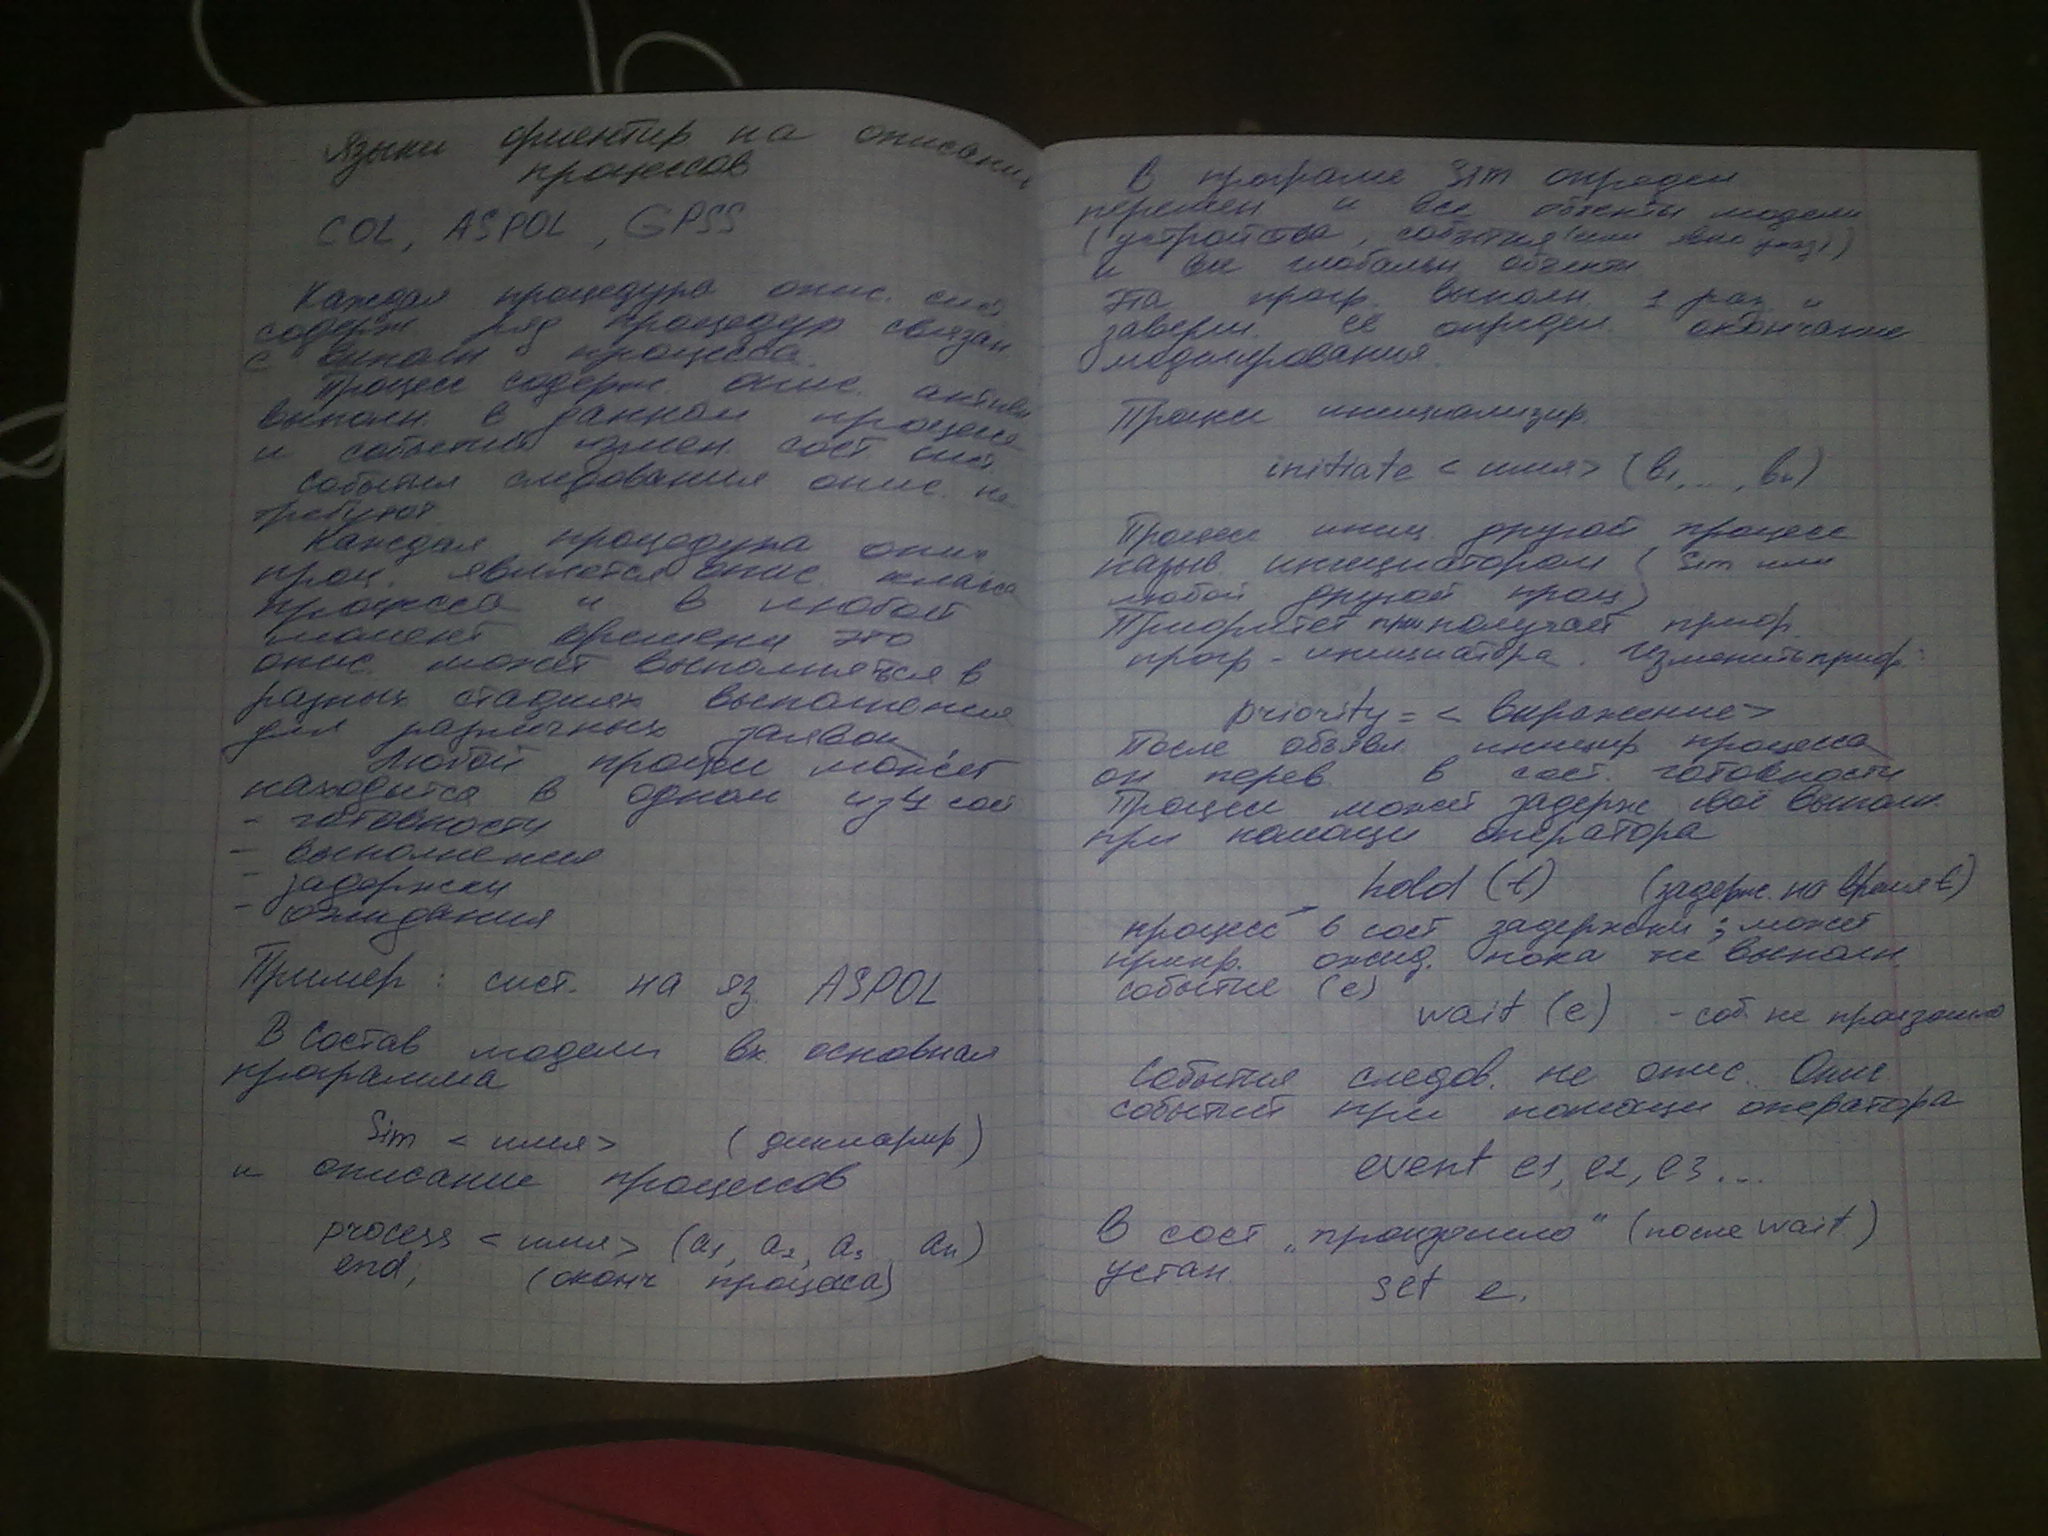 Языки ориентир на описание
процессов
COL, ASPOL, GPSS
Каждая процедура опис. сист
содерж. ряд процедур связан
с выполн процесса.
Процесс содерж. опис. активн
выполн. в данном процессе
и событий измен. сост сист.
События следования опис. не
требуют.
Каждая процедура опис
проц. является опис. класса
процесса и в любой
момент времени это
опис. может выполняться в
разных стадиях выполнения
для различных заявок
Любой процесс может
находится в одном из 4 сост
- готовности
- выполнения
- задержки
- ожидания
Пример: сист. на яз. ASPOL
В состав модели вх. основная
программа
Sim <имя> (декларир)
и описание процессов
process <имя> (a1, a2, a3 an)
end, (оконч процесса)
В програме Sim определ
перемен и все объекты модели
(устройства, события
и все глобальн объекты
Эта прогр. выполн 1 раз и
заверш. её определ. окончание
моделирования.
Процесс инициализир.
initiate <имя> (b1, ..., bn)
Процесс иниц. другой процесс
назыв. инициатором } Sim или
любой другой проц
Приоритет при получает приор.
прогр - инициатора. Изменить приор:
priority = <выражение>
После объявл. иницир процесса
он перев. в сост. готовности
Процесс может задерж своё выполн.
при помощи оператора
hold (t) (задерж. на время t)
процесс в сост задержки; может
прикр. ожид. пока не выполн
событие (e)
wait (e) - соб. не произошло
События следов. не опис. Опис
событий при помощи оператора
event e1, e2, e3 ...
В сост „произошло" (после wait)
устан.
set e.